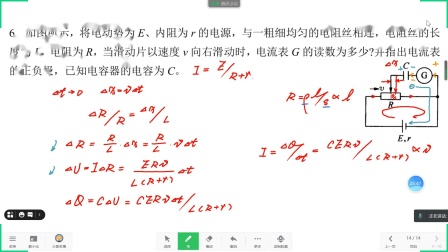 6. 如图所示，将电动势为 E、内阻为 r 的电源，与一粗细均匀的电阻丝相连，电阻丝的长
度为 L，电阻为 R，当滑动片以速度 v 向右滑动时，电流表 G 的读数为多少？并指出电流表
的正负极，已知电容器的电容为 C。 I = E/R+r
Δt→0 Δx=vΔt
ΔR/R = Δx/L
ΔR = R/L · Δx = R/L · vΔt
ΔU = IΔR = ERv/L(R+r) Δt
ΔQ = CΔU = CERvΔt/L(R+r)
R = ρ l/s ∝ l
I = ΔQ/Δt = CERv/L(R+r) ∝ v
Δx C
G
v
R
E,r
14 / 14